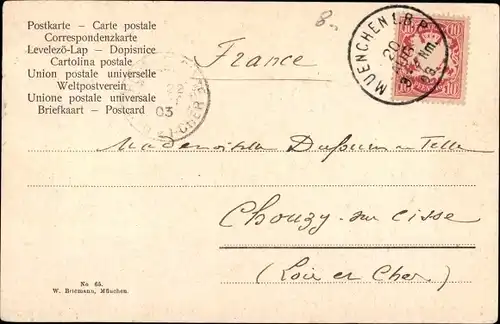 Postkarte – Carte postale
Correspondenzkarte
Levelező-Lap – Dopisnice
Cartolina postale
Union postale universelle
Weltpostverein
Unione postale universale
Briefkaart – Postcard
8.-
France
MUENCHEN I.B.P.
20
Nm
03
22
03
CHER
10
10
Mademoiselle
Chouzy-sur Cisse
(Loir et Cher)
No 65.
W. Briemann, München.